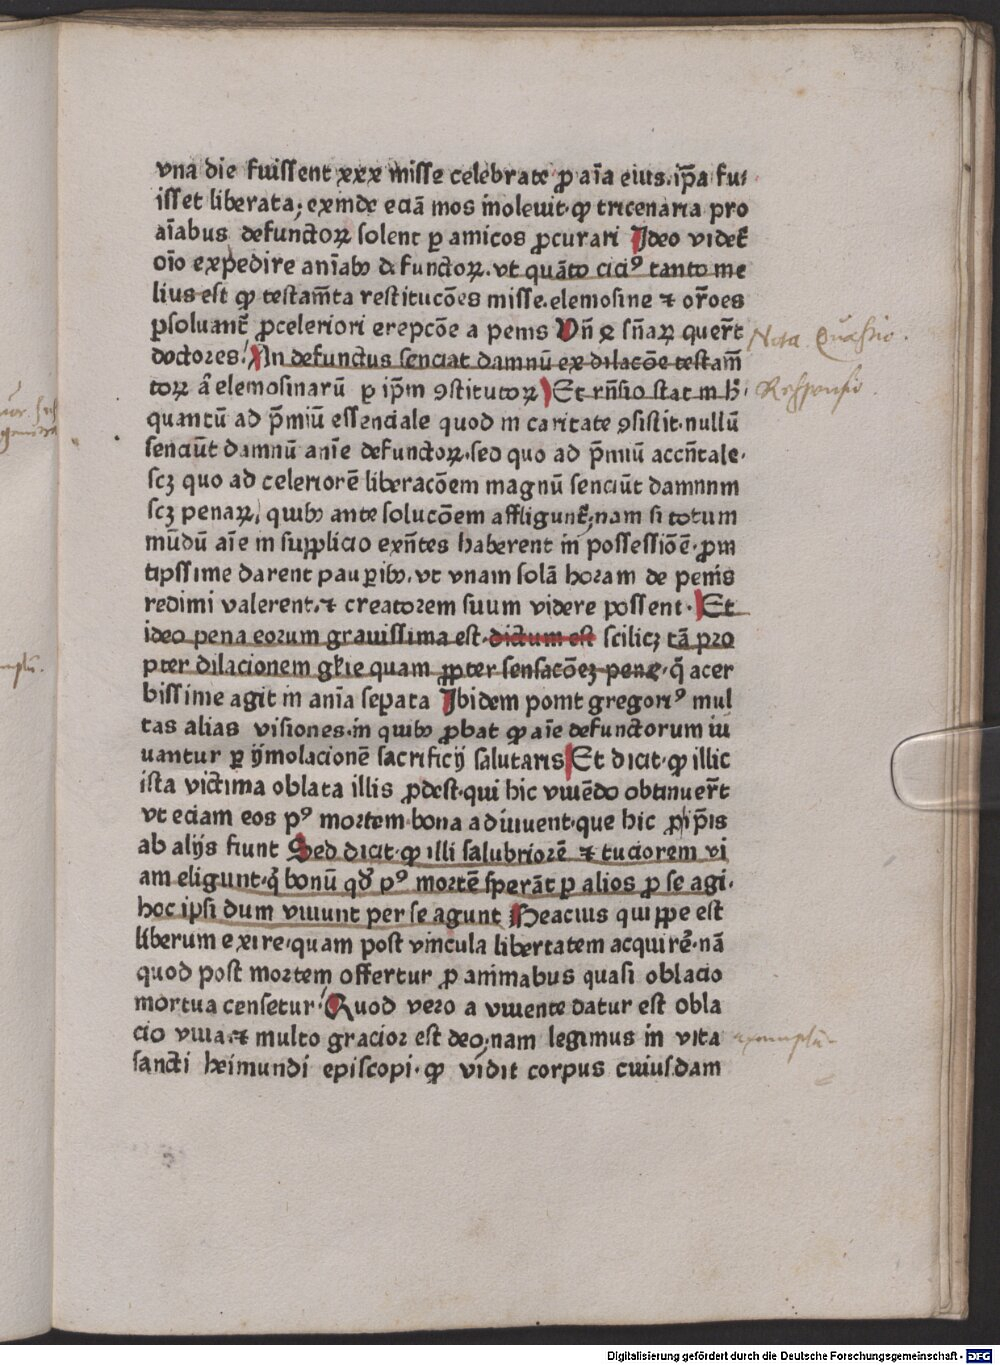 vna die fuissent xxx misse celebrate ꝓ aīa eius.ip̄a fu⸗
isset liberata; exinde eciā mos inoleuit·ꝙ tricenaria pro
aīabus defunctoꝝ solent ꝑ amicos ꝓcurari Ideo videt̄
oīo expedire anīabꝰ defunctoꝝ.vt quāto ciciꝰ tanto me
lius est ꝙ testam̄ta restitucōes misse.elemosine ⁊ or̄oes
ꝑsoluant̄ ꝓceleriori erepcōe a penis Vn̄ ꝗ sn̄aꝝ quer̄t
doctores! An defunctus senciat damnū ex dilacōe testam̄
toꝝ ā elemosinarū ꝑ ip̄m ꝯstitutoꝝ Et rn̄sio stat in h̄·
quantū ad p̄miū essenciale quod in caritate ꝯsistit·nullū
senciūt damnū anīe defunctoꝝ.sed quo ad p̄miū accn̄tale·
scꝫ quo ad celeriorē liberacōem magnū senciūt damnnm
scꝫ penaꝝ, quibꝰ ante solucōem affligunt̄;nam si totum
mūdū aīe in supplicio exn̄tes haberent in possessiōē·ꝓm
tipssime darent pauꝑibꝰ.vt vnam solā horam de penis
redimi valerent.⁊ creatorem suum videre possent· Et
ideo pena eorum grauissima est·dictum est scilicꝫ tā pro
pter dilacionem gl̄ie quam ꝓpter sensacōeꝫ pene·q̄ acer
bissime agit in anīa seꝑata Ibidem ponit gregoriꝰ mul
tas alias visiones.in quibꝰ ꝓbat ꝙ aīe defunctorum iu
uantur ꝑ ymolacionē sacrificij salutaris Et dicit·ꝙ illic
ista victima oblata illis ꝓdest·qui hic viuēdo obtinuer̄t
vt eciam eos pꝰ mortem·bona adiuuent·que hic ꝓ ip̄is
ab alijs fiunt Sed dicit·ꝙ illi salubriorē ⁊ tuciorem vi
am eligunt·q̄ bonū qd̄ pꝰ mortē sperāt ꝑ alios ꝓ se agi·
hoc ipsi dum viuunt per se agunt Beacius quippe est
liberum exire·quam post vincula libertatem acquirē·nā
quod post mortem offertur ꝓ animabus quasi oblacio
mortua censetur! Quod vero a viuente datur est obla
cio viua·⁊ multo gracior est deo;nam legimus in vita
sancti heimundi episcopi·ꝙ vidit corpus cuiusdam
Nota Quæstio.
Responsio
exemplū
mplū.
Digitalisierung gefördert durch die Deutsche Forschungsgemeinschaft - DFG